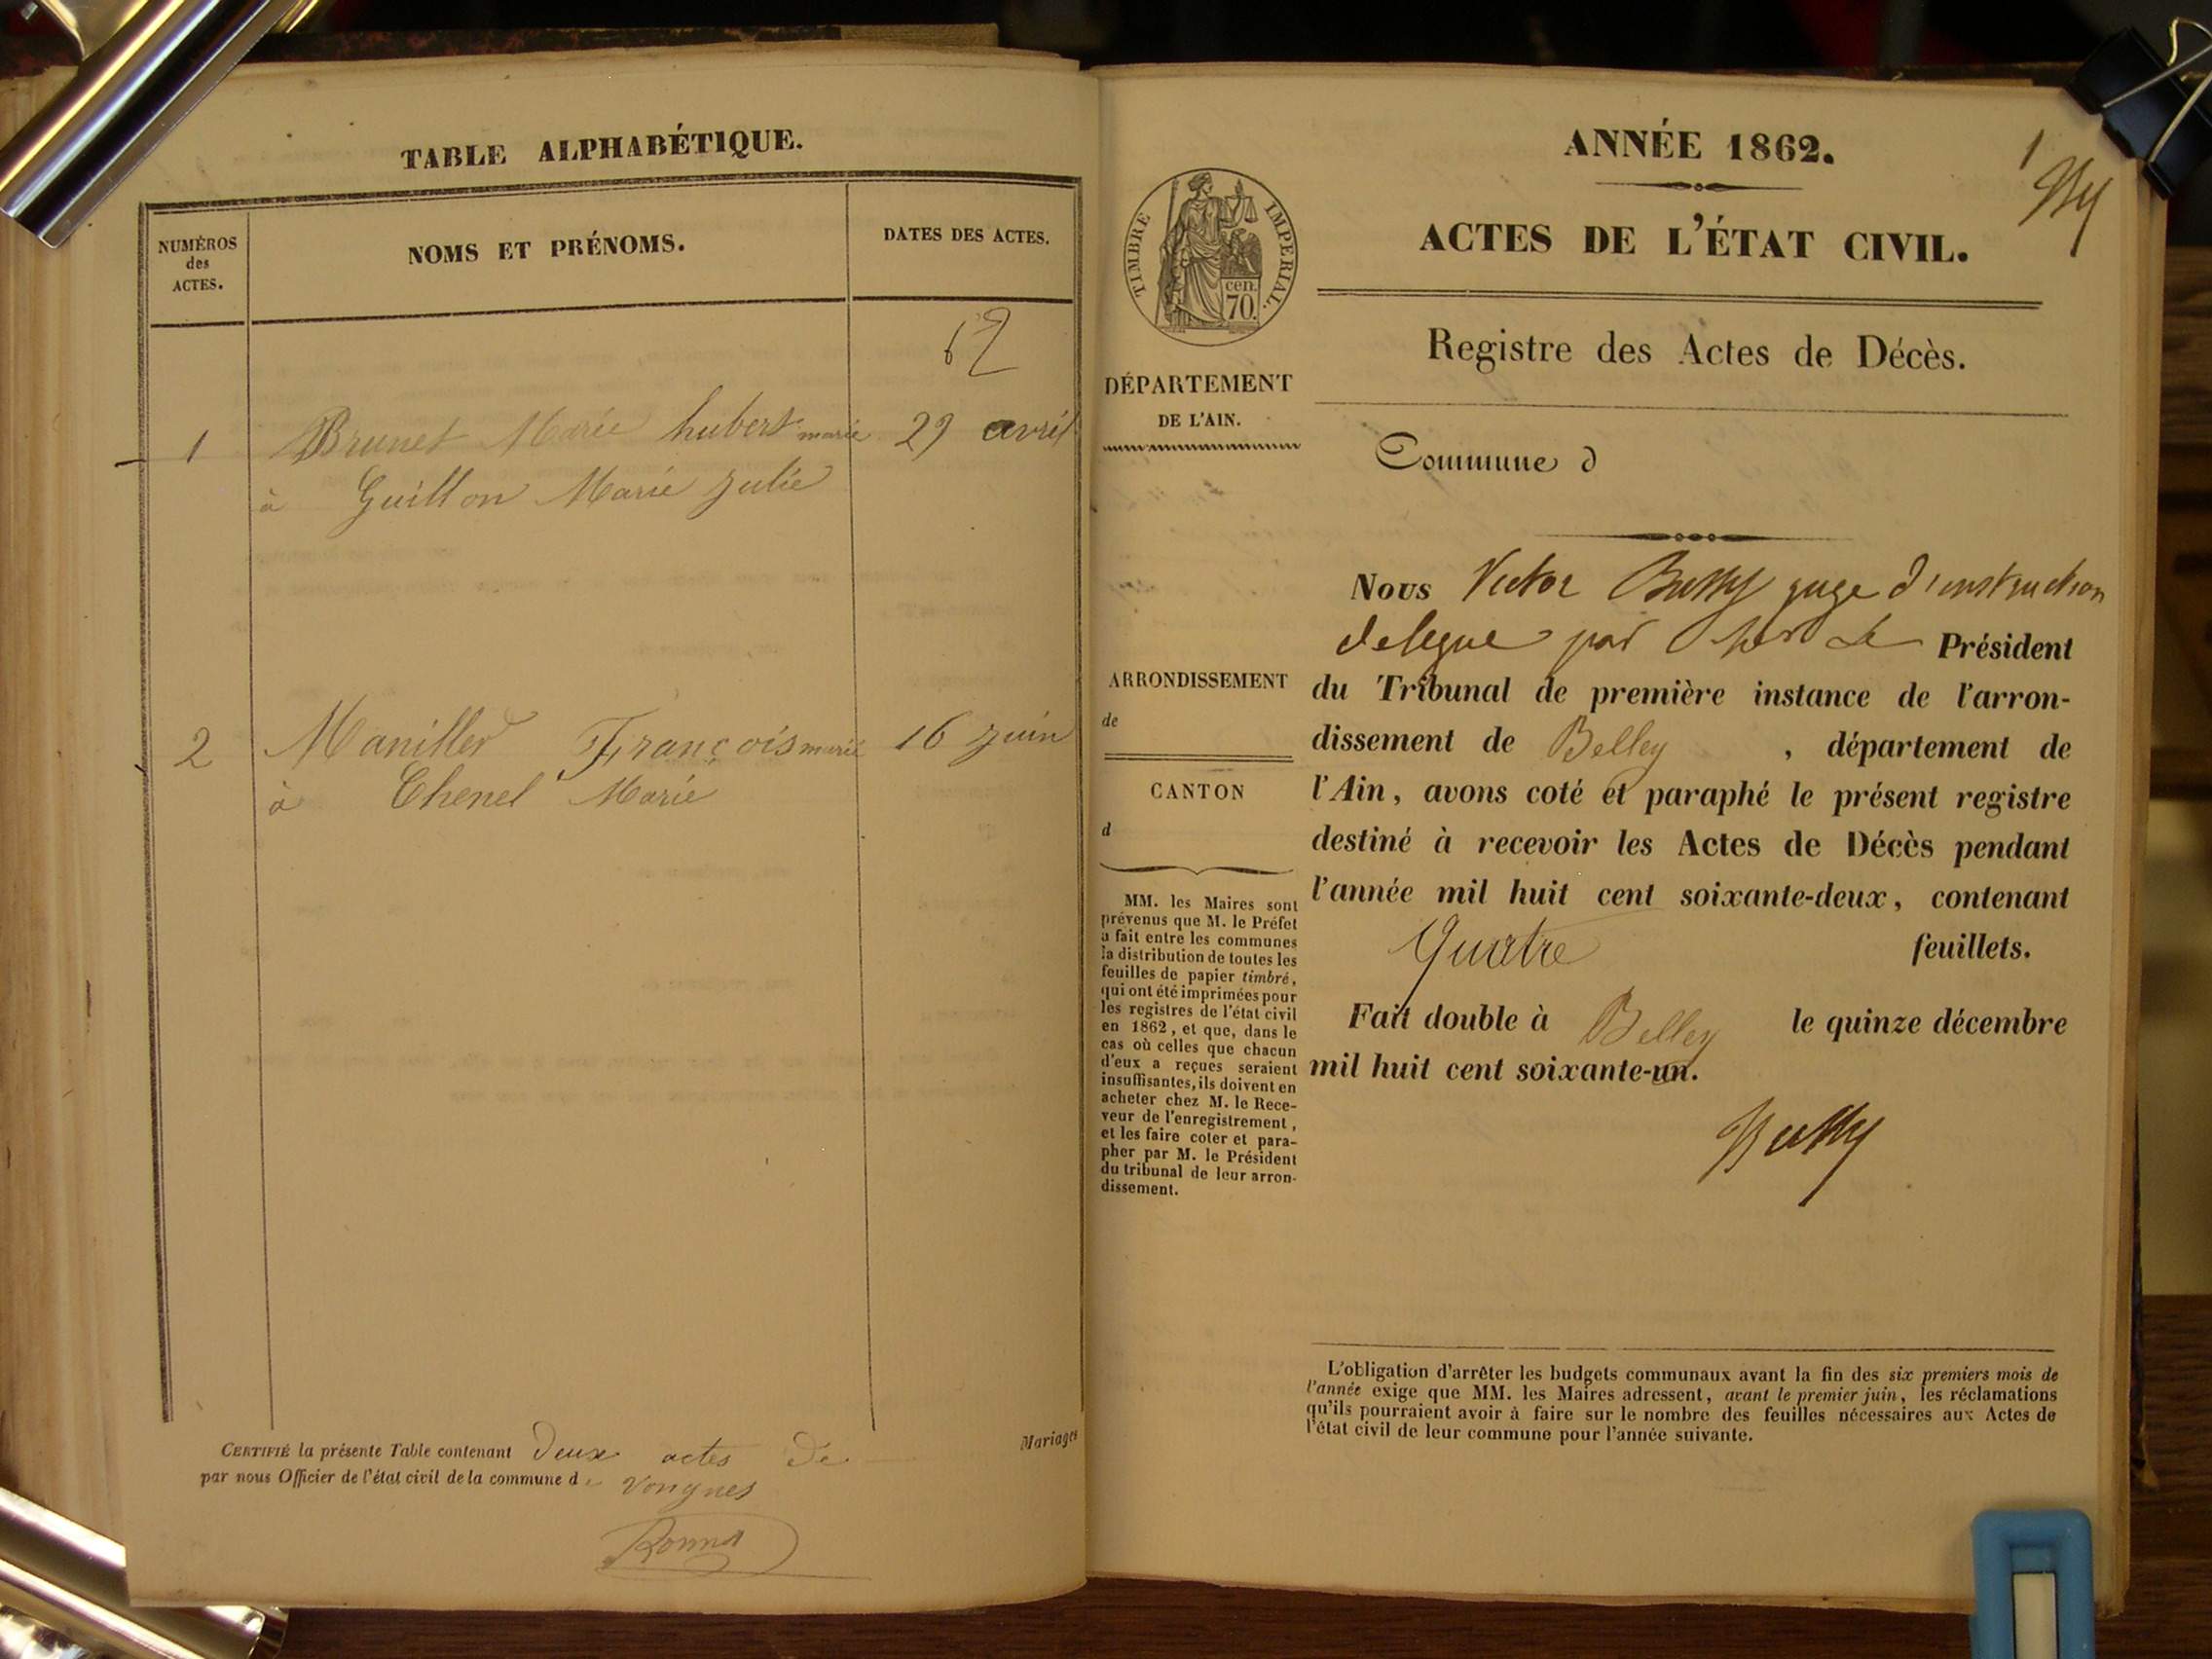 TABLE ALPHABÉTIQUE.
NUMÉROS
des
ACTES.
NOMS ET PRÉNOMS.
DATES DES ACTES.
62
1 Brunet Marie hubert marié 29 avril
à Guillon Marie Julie
2 Maniller François marié 16 juin
à Chenel Marie
CERTIFIÉ la présente Table contenant deux actes de
Mariages
par nous Officier de l'état civil de la commune de Vongnes
TIMBRE IMPÉRIAL.
cen.
70.
DÉPARTEMENT
DE L'AIN.
ARRONDISSEMENT
de
CANTON
d
MM. les Maires sont
prévenus que M. le Préfet
a fait entre les communes
la distribution de toutes les
feuilles de papier timbré,
qui ont été imprimées pour
les registres de l'état civil
en 1862, et que, dans le
cas où celles que chacun
d'eux a reçues seraient
insuffisantes, ils doivent en
acheter chez M. le Rece-
veur de l'enregistrement,
et les faire coter et para-
pher par M. le Président
du tribunal de leur arron-
dissement.
1
ANNÉE 1862.
ACTES DE L'ÉTAT CIVIL.
Registre des Actes de Décès.
Commune d
Nous Victor juge d'instruction
delegue par le Président
du Tribunal de première instance de l'arron-
dissement de Belley , département de
l'Ain, avons coté et paraphé le présent registre
destiné à recevoir les Actes de Décès pendant
l'année mil huit cent soixante-deux, contenant
Quatre feuillets.
Fait double à Belley le quinze décembre
mil huit cent soixante-un.
L'obligation d'arrêter les budgets communaux avant la fin des six premiers mois de
l'année exige que MM. les Maires adressent, avant le premier juin, les réclamations
qu'ils pourraient avoir à faire sur le nombre des feuilles nécessaires aux Actes de
l'état civil de leur commune pour l'année suivante.